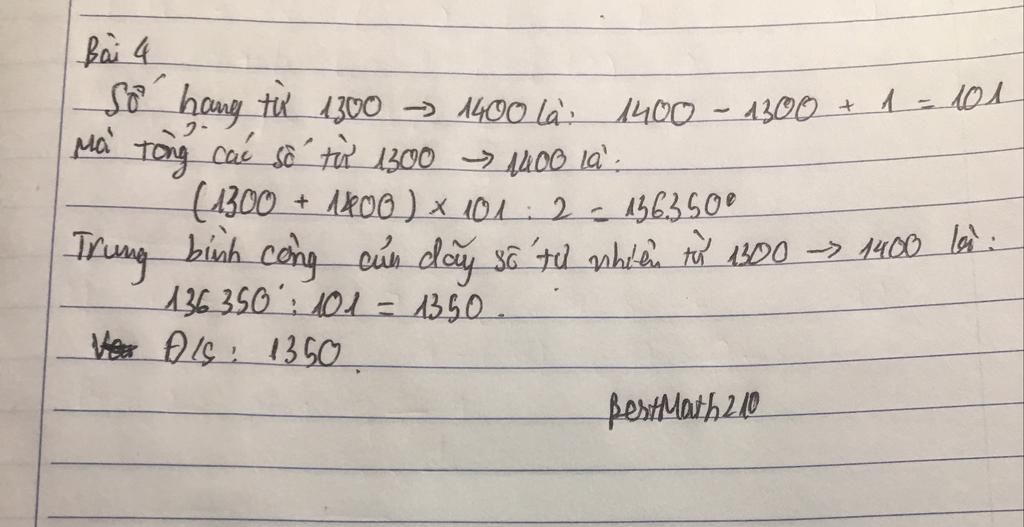 Bài 4
Số hạng từ 1300 → 1400 là: 1400 - 1300 + 1 = 101
Mà tổng các số từ 1300 → 1400 là:
(1300 + 1400) × 101 : 2 = 136350
Trung bình cộng của dãy số tự nhiên từ 1300 → 1400 là:
136350 : 101 = 1350.
Đ/s: 1350.
BestMath210